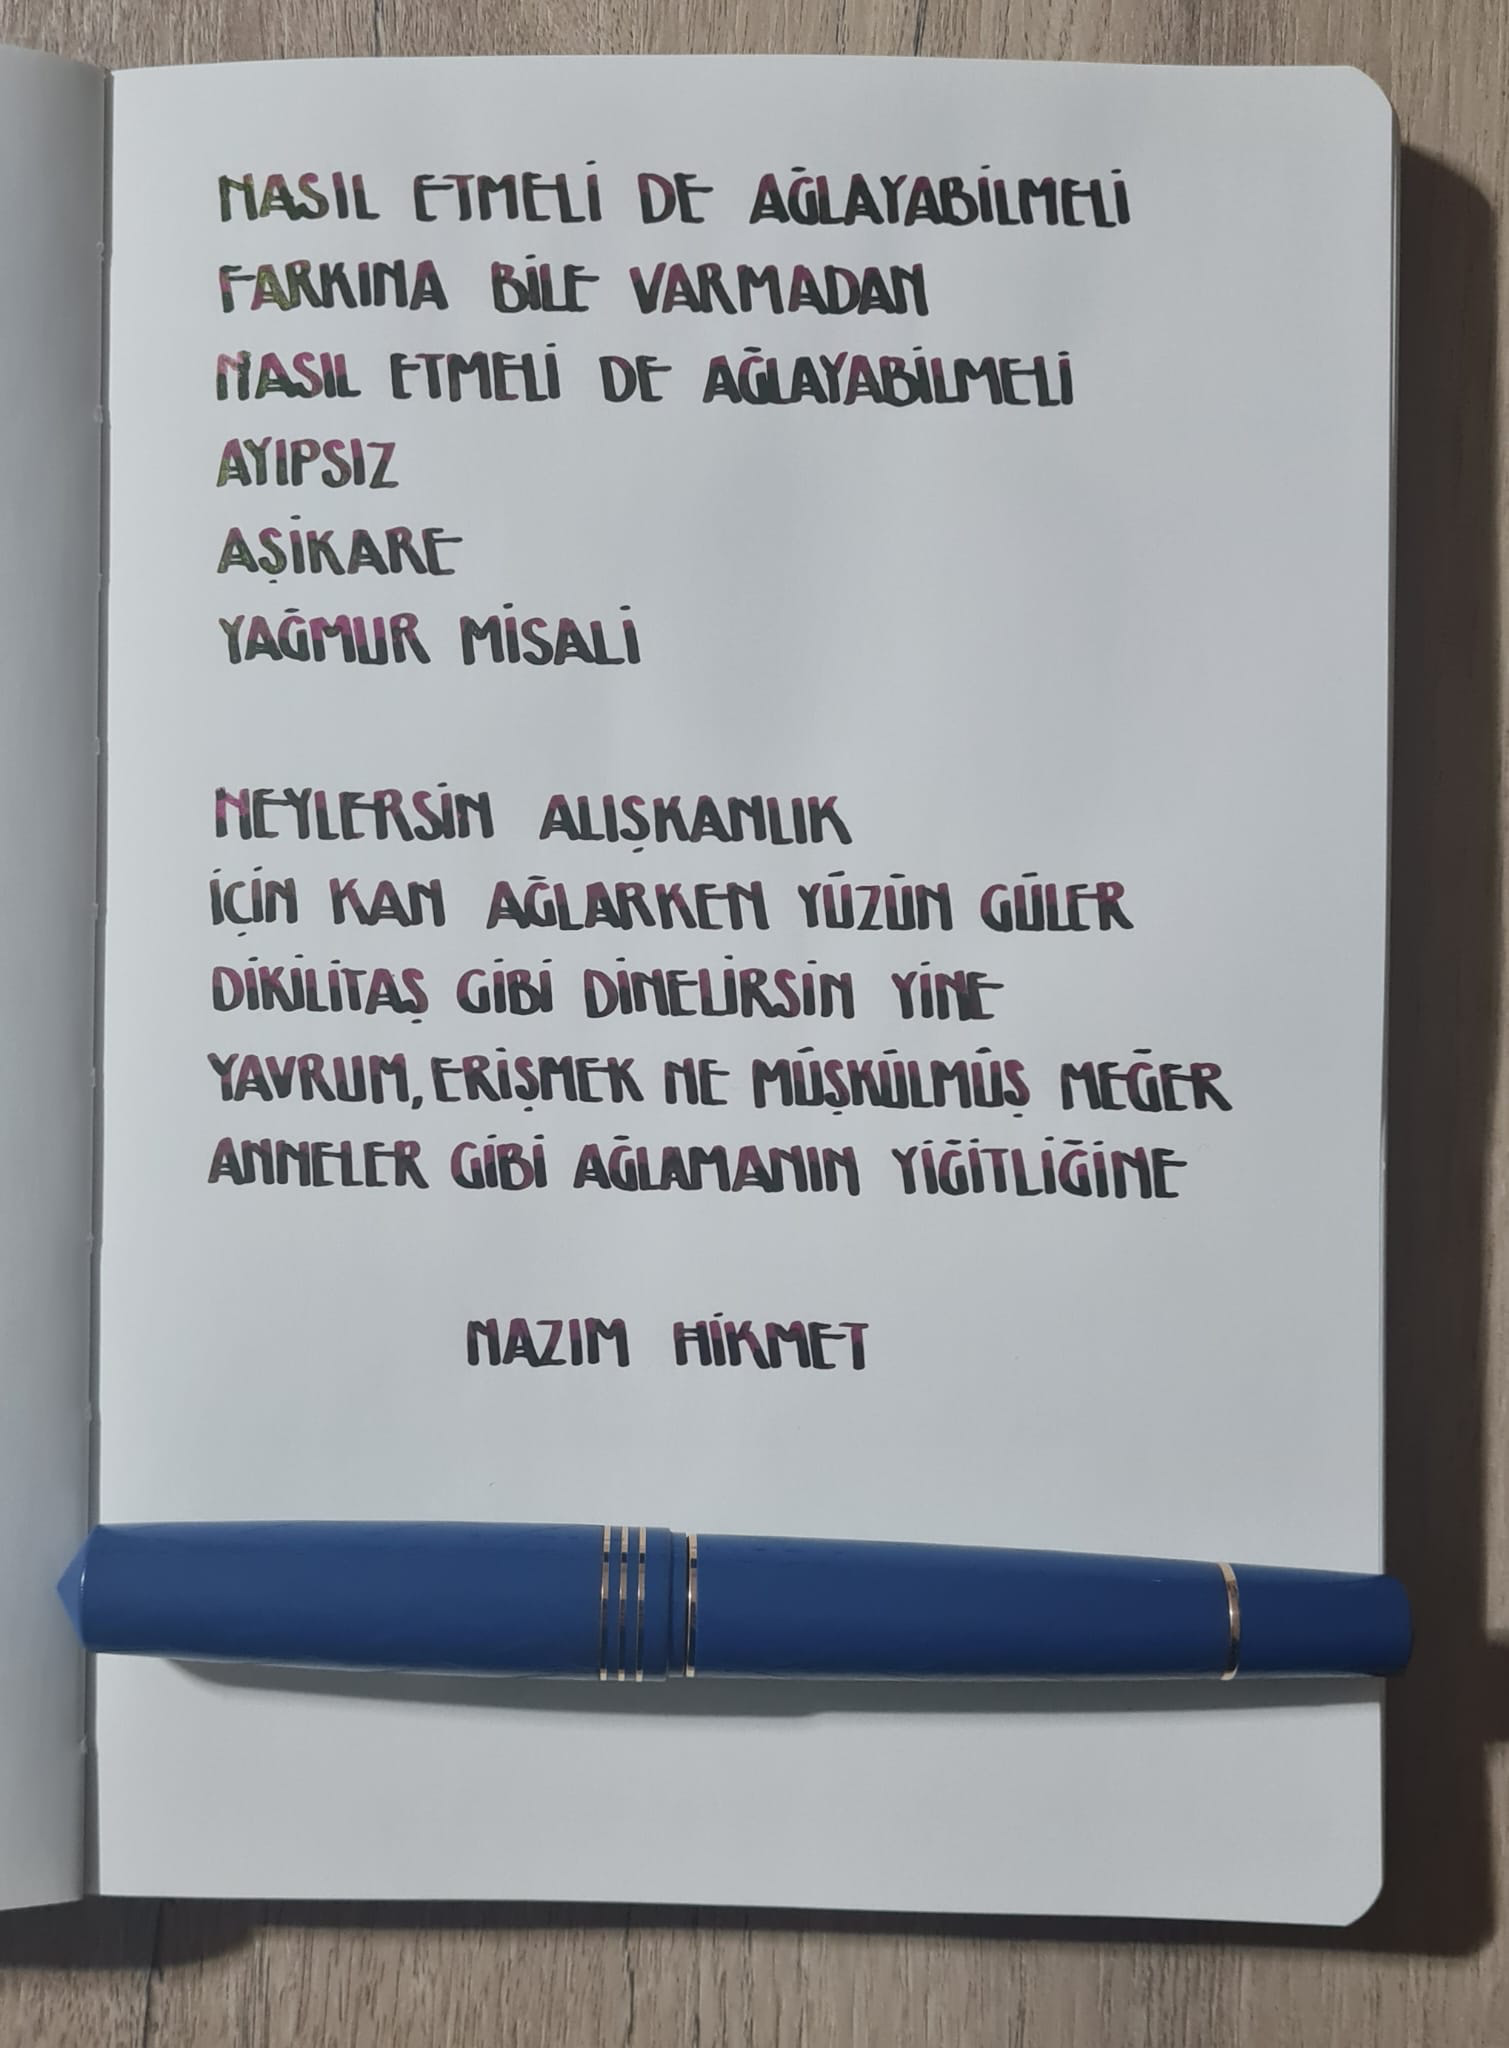 NASIL ETMELİ DE AĞLAYABİLMELİ
FARKINA BİLE VARMADAN
NASIL ETMELİ DE AĞLAYABİLMELİ
AYIPSIZ
AŞİKARE
YAĞMUR MİSALİ
NEYLERSİN ALIŞKANLIK
İÇİN KAN AĞLARKEN YÜZÜN GÜLER
DİKİLİTAŞ GİBİ DİNELİRSİN YİNE
YAVRUM, ERİŞMEK NE MÜŞKÜLMÜŞ MEĞER
ANNELER GİBİ AĞLAMANIN YİĞİTLİĞİNE
NAZIM HİKMET